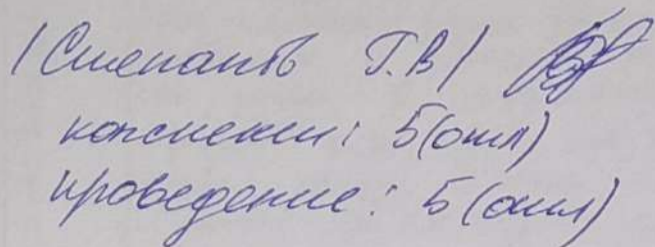 /Степанов Г.В/
конспект: 5(отл)
проведение: 5(отл)